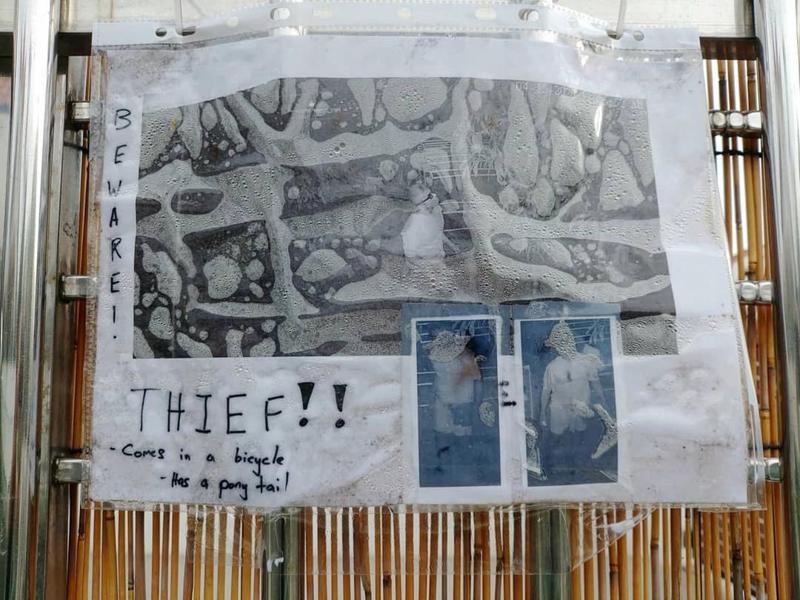 BEWARE!
THIEF!!
- Comes in a bicycle
- Has a pony tail